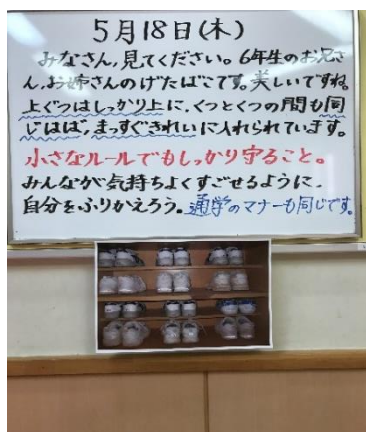 5月18日(木)
みなさん、見てください。6年生のお兄さ
ん、お姉さんのげたばこです。美しいですね。
上ぐつはしっかり上に、くつとくつの間も同
じはば、まっすぐきれいに入れられています。
小さなルールでもしっかり守ること。
みんなが気持ちよくすごせるように、
自分をふりかえろう。通学のマナーも同じです。